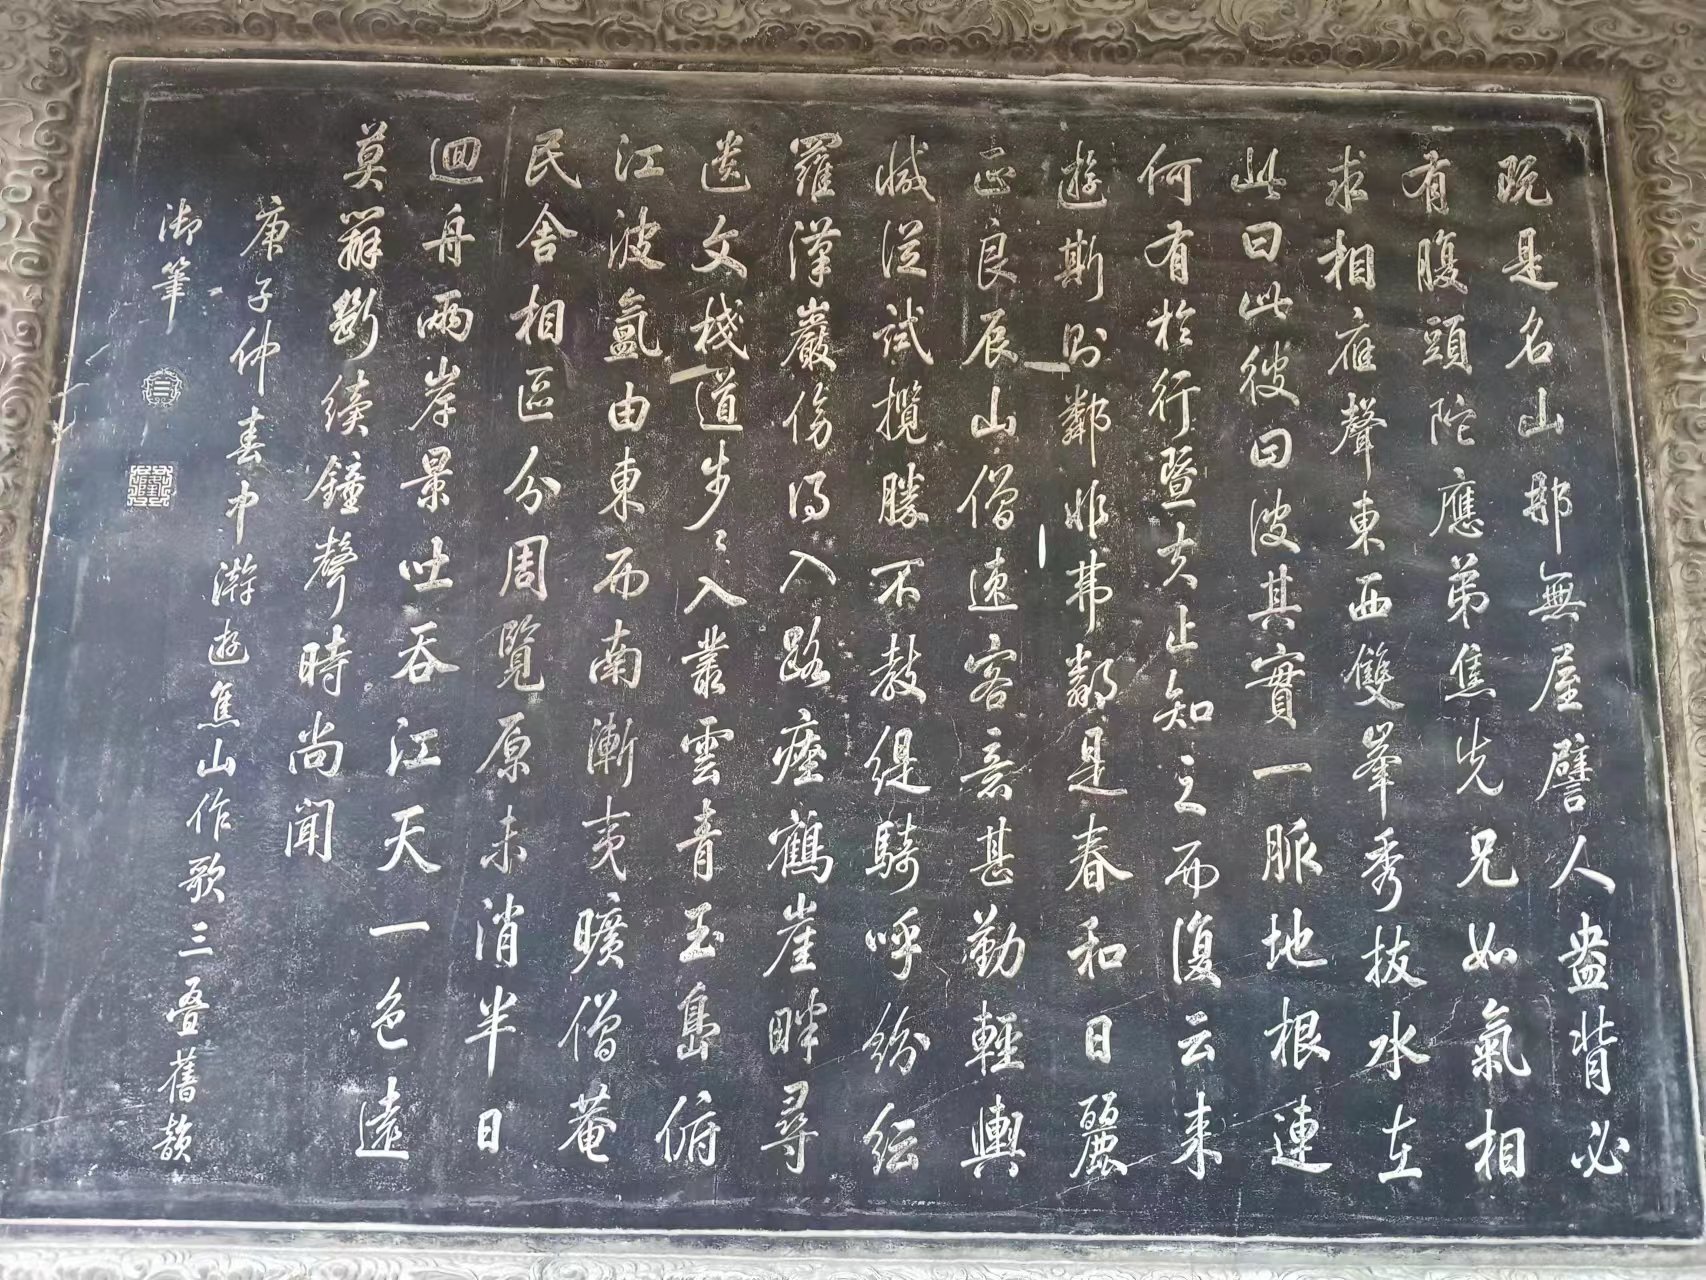 既是名山那無屋譬人盎背必
有腹頭陀應弟焦先兄如氣相
求相應聲東西雙峯秀拔水在
此曰此彼曰彼其實一脈地根連
何有於行暨去止知之而復云来
遊斯則鄰非弗鄰是春和日麗
正良辰山僧速客意甚勤輕輿
減從試攬勝不教緹騎呼紛紜
羅漢巖傍得入路瘞鶴崖畔尋
遺文棧道步〻入叢雲青玉島俯
江波氳由東而南漸夷曠僧菴
民舍相區分周覽原未消半日
迴舟兩岸景吐吞江天一色遠
莫辨斷續鐘聲時尚聞
庚子仲春中澣遊焦山作歌三疊舊韻
御筆